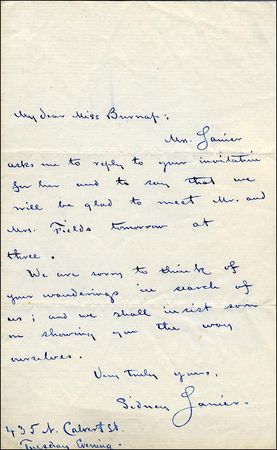 My dear Miss Burnap:
Mrs. Lanier
asks me to reply to your invitation
for her and to say that we
will be glad to meet Mr. and
Mrs. Fields tomorrow at
three.
We are sorry to think of
your wanderings in search of
us; and we shall insist soon
on showing you the way
ourselves.
Very truly yours,
Sidney Lanier.
435 N. Calvert St.
Tuesday Evening.